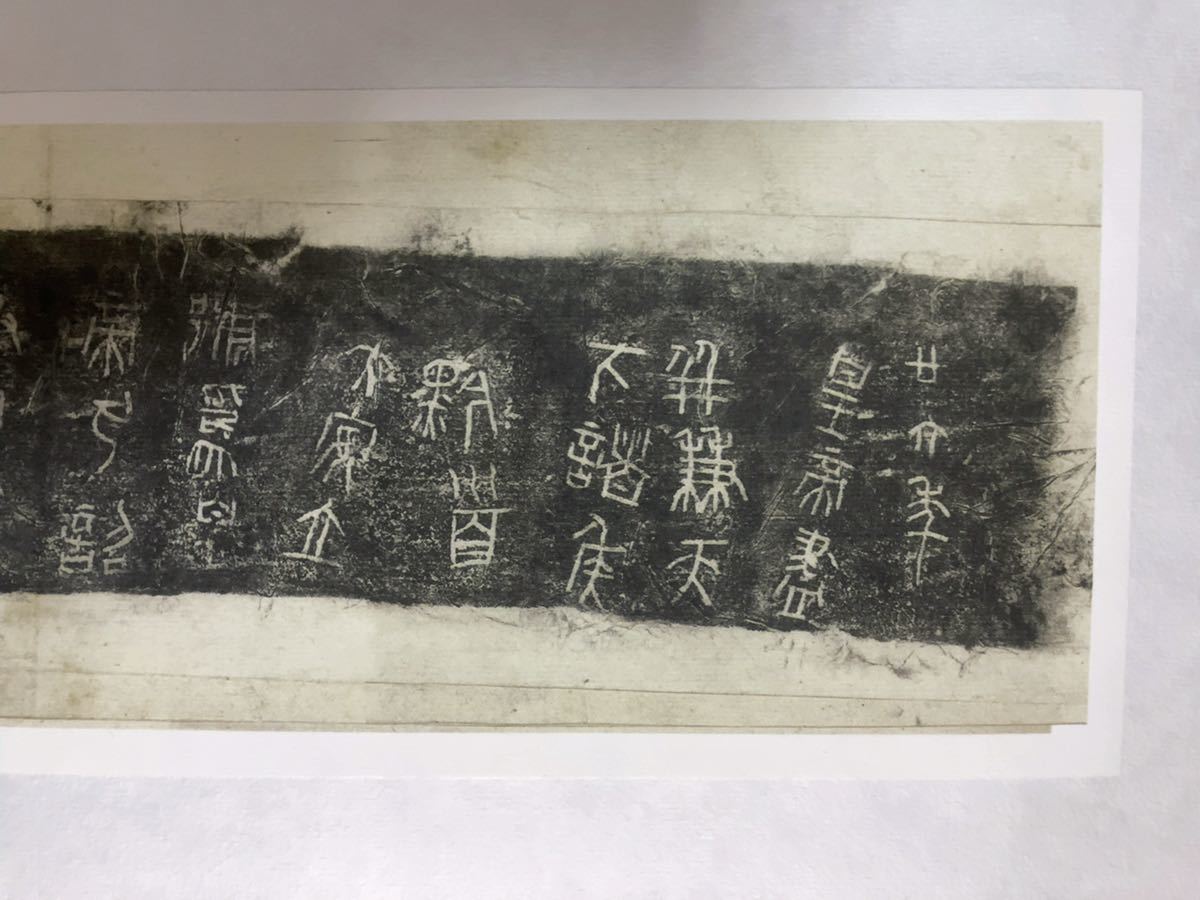 廿六年
皇帝盡
并兼天
下諸侯
黔首
大安立
號為皇
帝乃詔